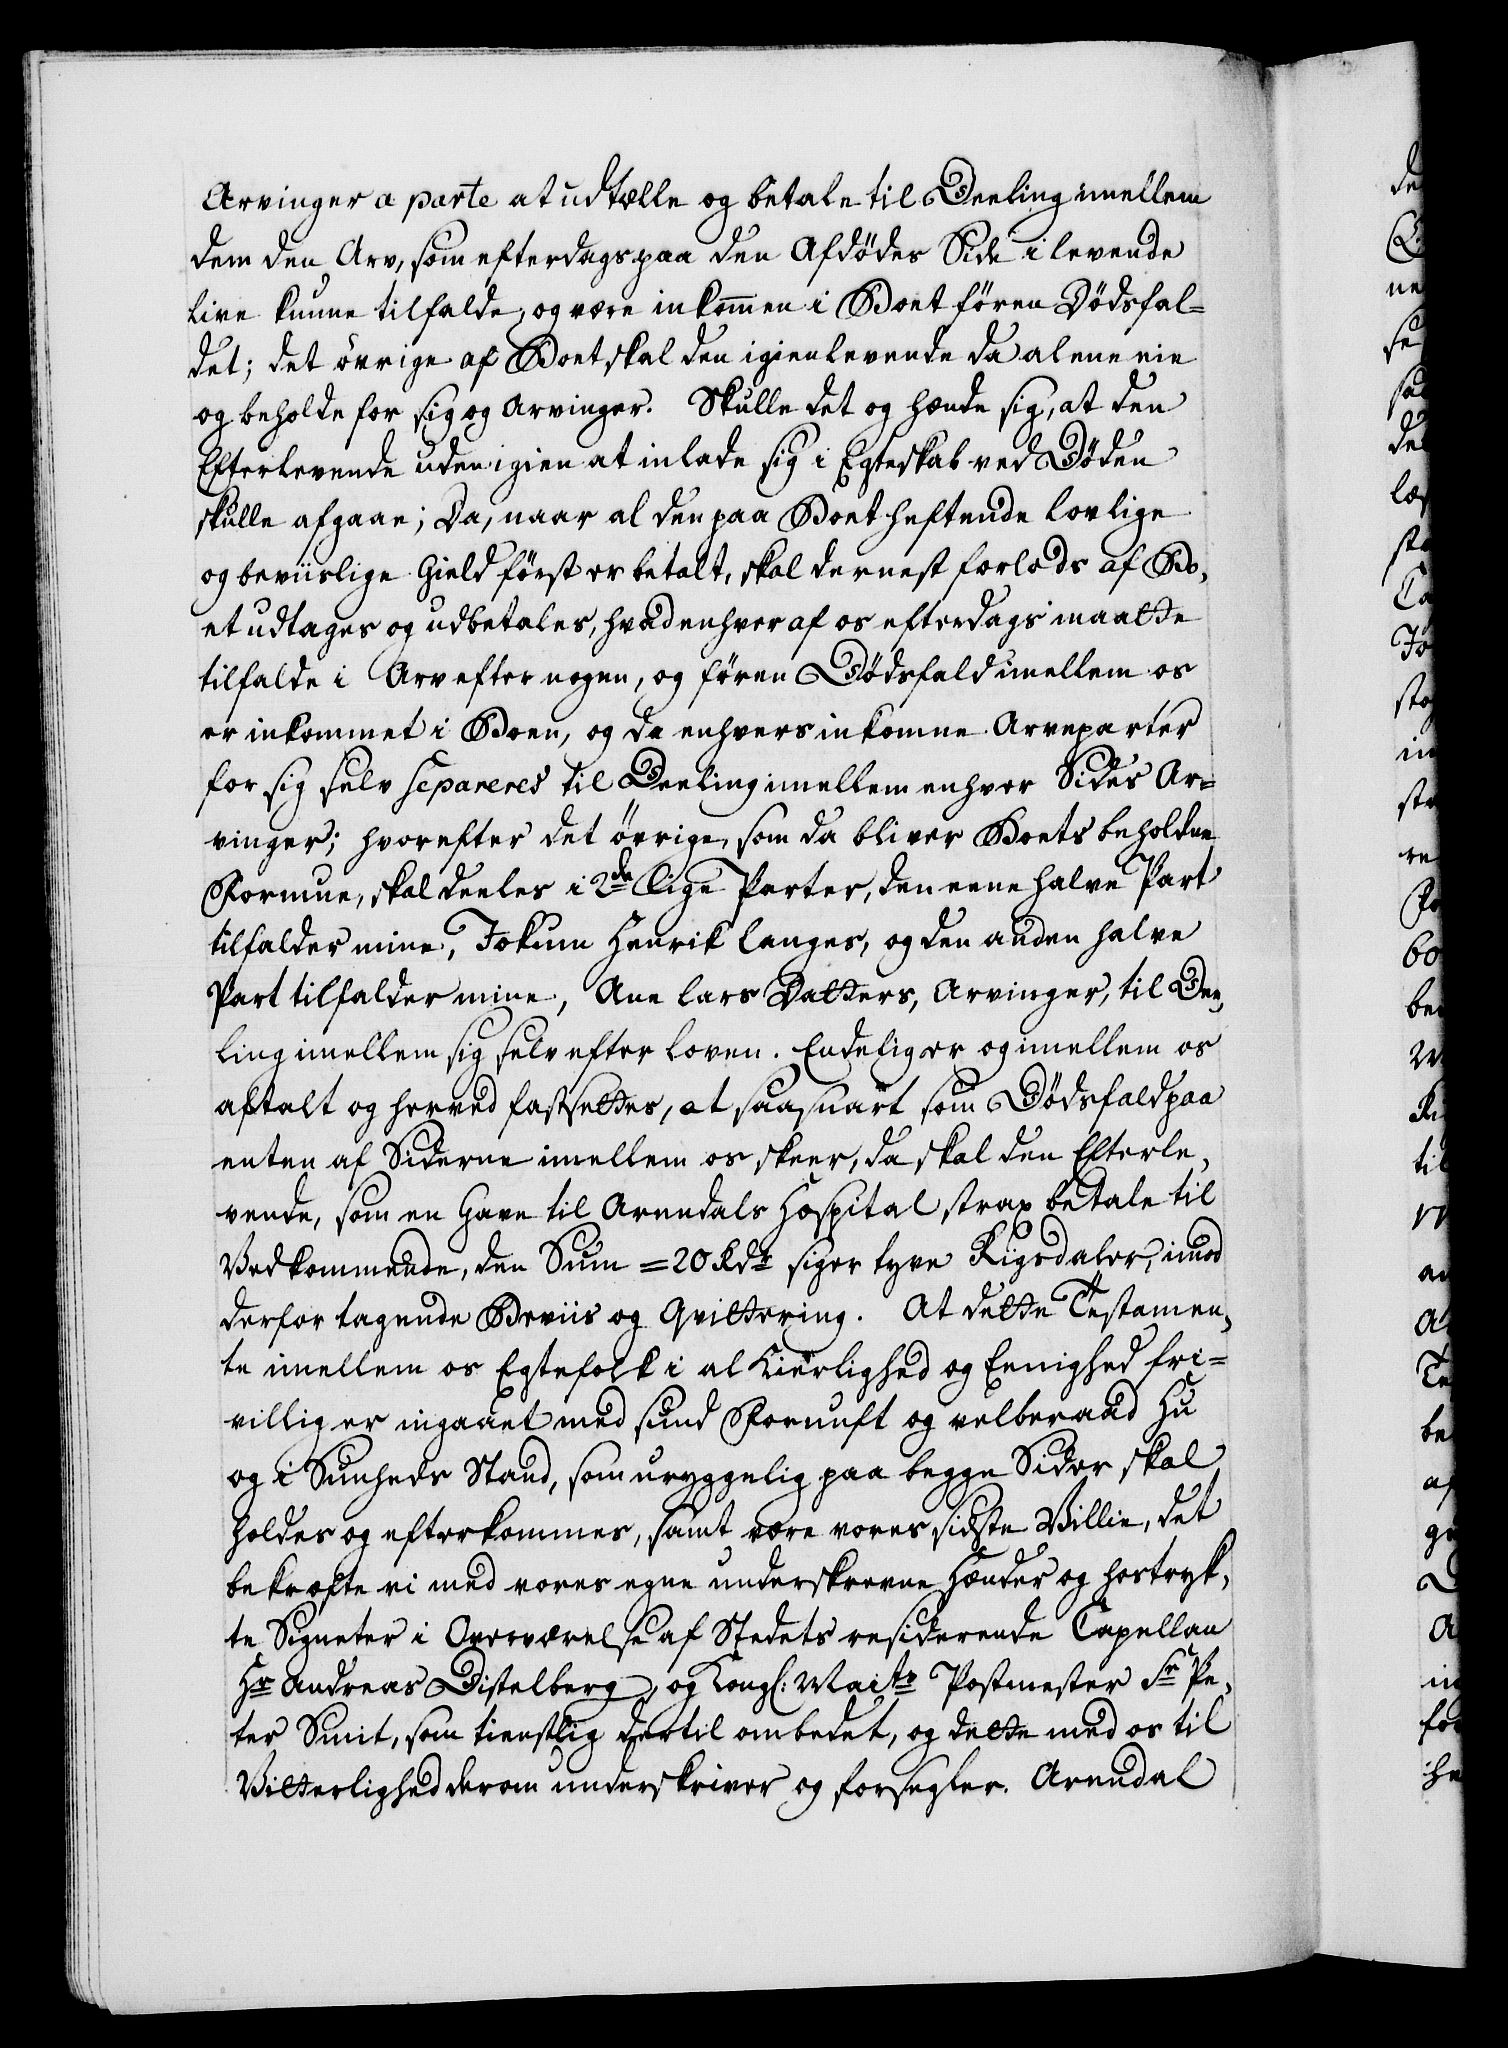 Arvinger a parte at udtælle og betale til Deeling imellem
dem den Arv, som efterdags paa den Afdødes Side i levende
Live kunne tilfalde, og være inkom̄en i Boet føren Dødsfal=
det; det øvrige af Boet skal den igienlevende da alene eie
og beholde for sig og Arvinger. Skulle det og hænde sig, at den
Efterlevende uden igien at inlade sig i Egteskab ved Døden
skulle afgaae; Da, naar al den paa Boet heftende lovlige
og beviislige Gield først er betalt, skal dernest forlods af Bo,
et udtages og udbetales, hvad enhver af os efterdags maatte
tilfalde i Arv efter nogen, og føren Dødsfald imellem os
er inkommet i Boen, og da enhvers inkomne Arveparter
for sig selv separeres til Deeling imellem enhver Sides Ar=
vinger; hvorefter det øvrige, som da bliver Boets beholdne
Formue, skal deeles i 2de lige Parter, den eene halve Part
tilfalder mine, Jokum Henrik Langes, og den anden halve
Part tilfalder mine, Ane Lars Datters, Arvinger, til Dee,
ling imellem sig selv efter Loven. Endelig er og imellem os
aftalt og herved fastsettes, at saasnart som Dødsfald paa
enten af Siderne imellem os skeer, da skal den Efterle,
vende, som en Gave til Arendals Hospital strax betale til
Vedkommende, den Sum = 20 Rdr siger tyve Rigsdaler, imod
derfor tagende Beviis og Qvittering. At dette Testamen,
te imellem os Egtefolk i al Kierlighed og Eenighed fri=
villig er ingaaet med sund Fornuft og velberaad Hu
og i Sunheds Stand, som uryggelig paa begge Sider skal
holdes og efterkommes, samt være vores sidste Villie, det
bekræfte vi med vores egne underskrevne Hænder og hostryk,
te Signeter i Overværelse af Stedets residerende Capellan
Hr Andreas Distelberg, og Kongl: Maits Postmester Sr Pe,
ter Smit, som tienstlig dertil ombedet, og dette med os til
Vitterlighed derom underskriver og forsegler. Arendal